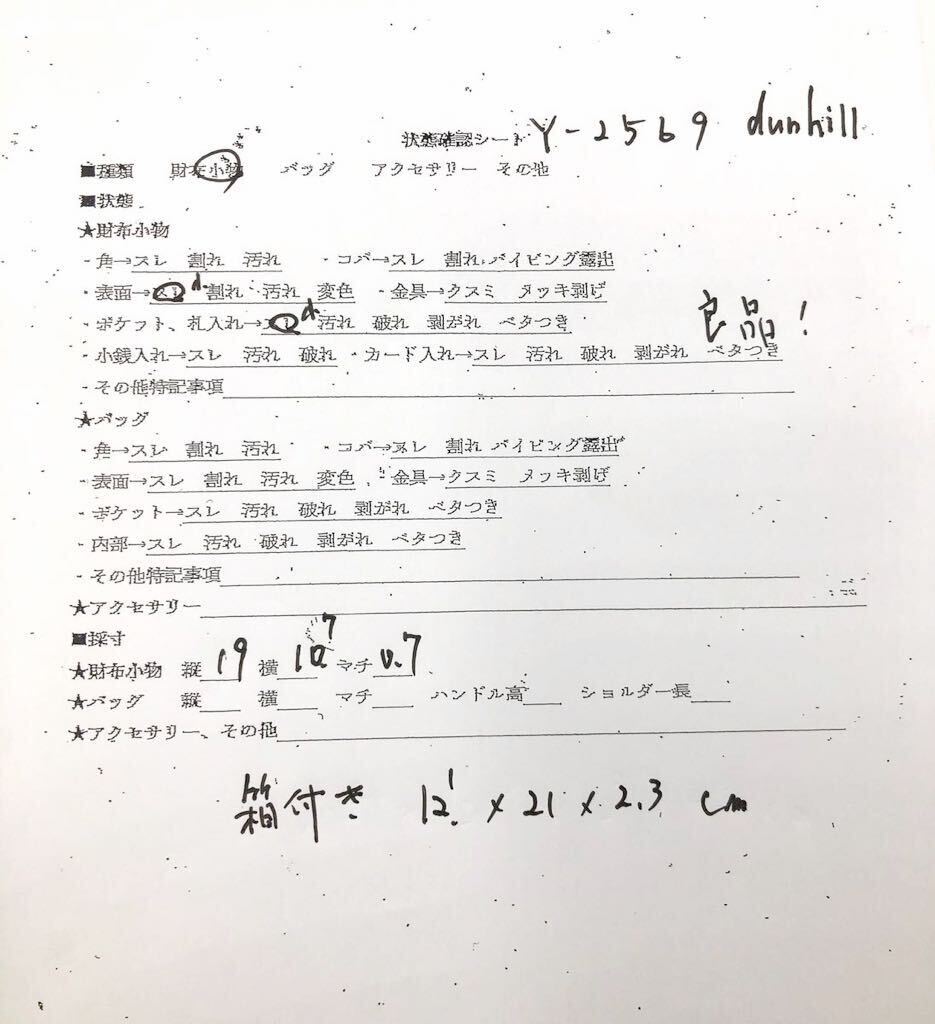 状態確認シート Y-2569 dunhill
■種類 財布小物 バッグ アクセサリー その他
■状態
★財布小物
・角→スレ 割れ 汚れ ・コバ→スレ 割れ パイピング露出
・表面→スレ 割れ 汚れ 変色 ・金具→クスミ メッキ剥げ
・ポケット、札入れ→スレ 汚れ 破れ 剥がれ ベタつき
良品!
・小銭入れ→スレ 汚れ 破れ ・カード入れ→スレ 汚れ 破れ 剥がれ ベタつき
・その他特記事項
★バッグ
・角→スレ 割れ 汚れ ・コバ→スレ 割れ パイピング露出
・表面→スレ 割れ 汚れ 変色 ・金具→クスミ メッキ剥げ
・ポケット→スレ 汚れ 破れ 剥がれ ベタつき
・内部→スレ 汚れ 破れ 剥がれ ベタつき
・その他特記事項
★アクセサリー
■採寸
★財布小物 縦19 横10.7 マチ0.7
★バッグ 縦 横 マチ ハンドル高 ショルダー長
★アクセサリー、その他
箱付き 12.1 x 21 x 2.3 cm